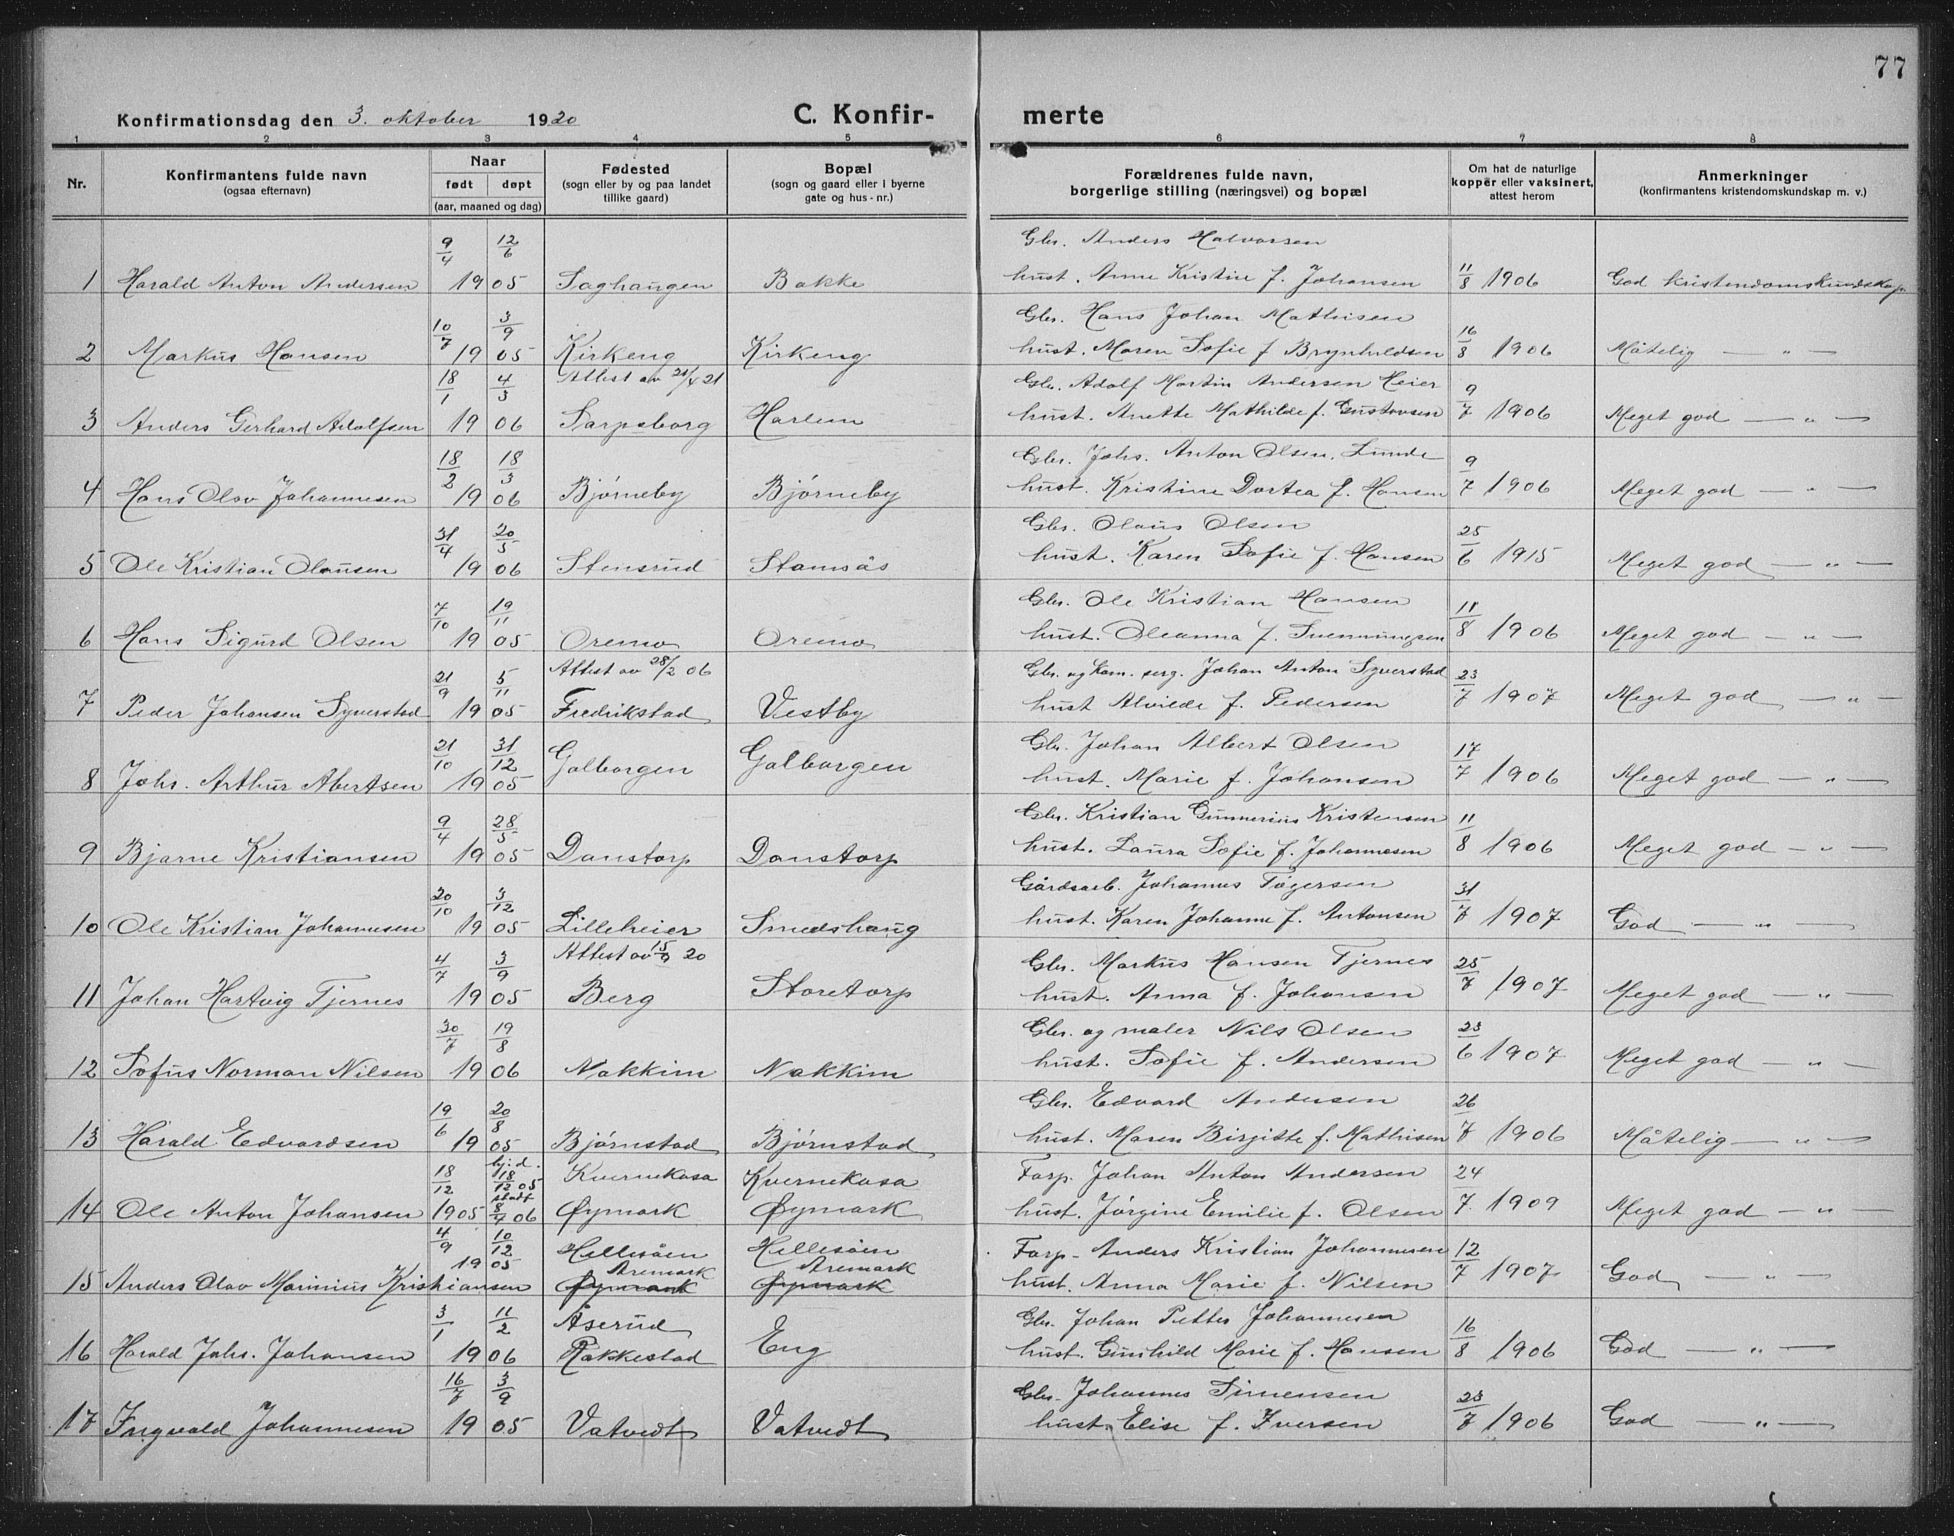 77
Konfirmationsdag den 3. oktober 1920
C. Konfirmerte
1 2 3 4 5 6 7 8
Nr. | Konfirmantens fulde navn (ogsaa efternavn) | Naar født døpt (aar, maaned og dag) | Fødested (sogn eller by og paa landet tillike gaard) | Bopæl (sogn og gaard eller i byerne gate og hus-nr.) | Forældrenes fulde navn, borgerlige stilling (næringsvei) og bopæl | Om hat de naturlige kopper eller vaksinert, attest herom | Anmerkninger (konfirmantens kristendomskundskap m. v.)
1 Harald Anton Andersen 9/4 12/6 1905 Saghaugen Bakke Gbr. Anders Halvorsen hust. Anne Kristine f. Johansen 11/8 1906 God kristendomskundskap
2 Markus Hansen 10/7 3/9 1905 Kirkeng Kirkeng Gbr. Hans Johan Mathisen hust. Maren Sofie f Brynhildsen 16/8 1906 Måtelig — „ —
3 Anders Gerhard Adolfsen 18/1 4/3 1906 Attest av 21/4 21 Sarpsborg Harlem Gbr. Adolf Martin Andersen Heier hust. Anette Mathilde f. Gustavsen 9/7 1906 Meget god — „ —
4 Hans Olav Johannesen 18/2 18/3 1906 Bjørneby Bjørneby Gbr. Johs. Anton Olsen, Lunde hust. Kristine Dortea f. Hansen 9/7 1906 Meget god — „ —
5 Ole Kristian Olausen 31/4 20/5 1906 Stensrud Stamsås Gbr. Olaus Olsen hust. Karen Sofie f. Hansen 25/6 1915 Meget god — „ —
6 Hans Sigurd Olsen 7/10 19/11 1905 Oremo Oremo Gbr. Ole Kristian Hansen hust. Oleanna f. Svennungsen 11/8 1906 Meget god — „ —
7 Peder Johansen Syverstad 21/9 5/11 1905 Attest av 28/2 06 Fredrikstad Vestby Gbr. og kom. serg. Johan Anton Syverstad hust Alvilde f. Pedersen 23/7 1907 Meget god — „
8 Johs. Arthur Abertsen 21/10 31/12 1905 Galborgen Galborgen Gbr. Johan Albert Olsen hust. Marie f. Johansen 17/7 1906 Meget god — „ —
9 Bjarne Kristiansen 9/4 28/5 1905 Danstorp Danstorp Gbr. Kristian Gunnerius Kristensen hust. Laura Sofie f. Johannesen 11/8 1906 Meget god — „ —
10 Ole Kristian Johannesen 20/10 3/12 1905 Lilleheier Smedshaug Gårdsarb. Johannes Tøgersen hust. Karen Johanne f. Antonsen 31/7 1907 God — „ —
11 Johan Hartvig Tjernes 4/7 3/9 1905 Attest av 15/9 20 Berg Storetorp Gbr. Markus Hansen Tjernes hust. Anna f. Johansen 25/7 1907 Meget god — „ —
12 Sofus Norman Nilsen 30/7 19/8 1906 Nakkim Nakkim Gbr. og maler Nils Olsen hust. Sofie f. Andersen 23/6 1907 Meget god — „ —
13 Harald Edvardsen 19/6 20/8 1905 Bjørnstad Bjørnstad Gbr. Edvard Andersen hust. Maren Birgitte f. Mathisen 26/7 1906 Måtelig — „ —
14 Ole Anton Johansen 18/12 1905 hj.d. 18/12 05 stadf 8/7 06 Kvernekasa Øymark Kvernekasa Øymark Forp. Johan Anton Andersen hust. Jørgine Emilie f. Olsen 24/7 1909 Meget god — „ —
15 Anders Olav Marinius Kristiansen 4/9 10/12 1905 Hellesåen Aremark Øymark Hellesåen Aremark Øymark Forp. Anders Kristian Johannesen hust. Anna Marie f. Nilsen 12/7 1907 God — „ —
16 Harald Johs. Johansen 3/1 11/2 1906 Åserud Rakkestad Eng Gbr. Johan Petter Johannesen hust. Gunhild Marie f. Hansen 16/8 1906 God — „ —
17 Ingvald Johannesen 16/7 3/9 1905 Vatvedt Vatvedt Gbr. Johannes Simensen hust. Elise f. Iversen 23/7 1906 God — „ —